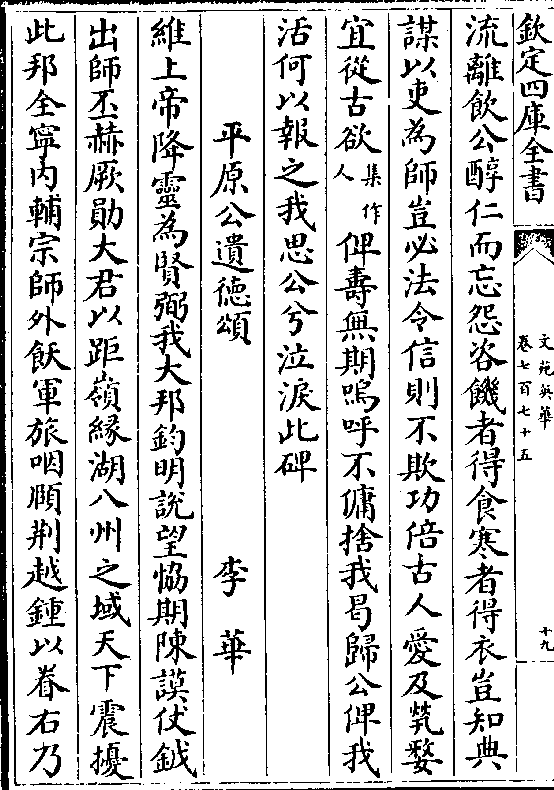 欽定四庫全書
文苑英華
卷七百七十五
十九
流離飲公醇仁而忘怨咨饑者得食寒者得衣豈知典
謀以吏為師豈必法令信則不欺功倍古人愛及煢嫠
宜從古欲集作人俾壽無期嗚呼不傭捨我曷歸公俾我
活何以報之我思公兮泣淚此碑
平原公遺德頌 李華
維上帝降靈為賢弼我大邦鈞明說望恊期陳謨仗鉞
出師丕赫厥勛大君以距嶺緣湖八州之域天下震擾
此邦全寧内輔宗師外飫軍旅咽頋荆越鍾以眷右乃